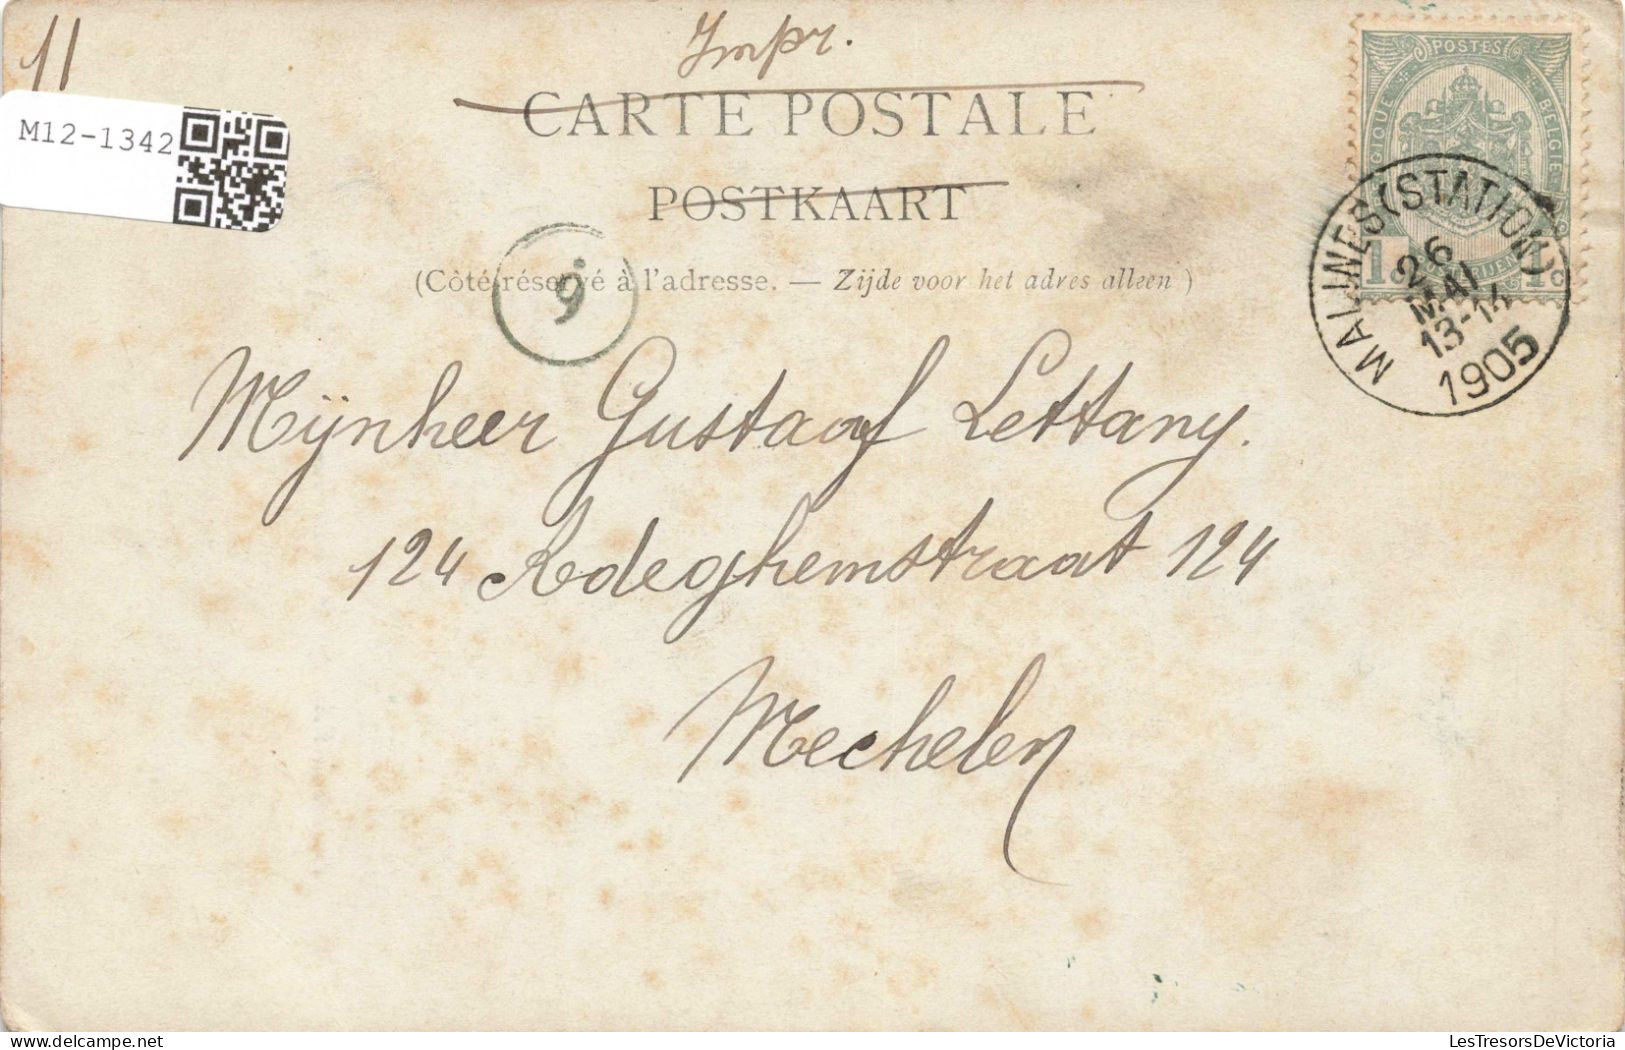 11
Impr.
M12-1342
CARTE POSTALE
POSTKAART
(Côté réservé à l'adresse. — Zijde voor het adres alleen)
9
POSTES
BELGIQUE
BELGIE
1c
1c
MALINES (STATION)
26
MAI
13-14
1905
Mijnheer Gustaaf Lettany.
124 Adeghemstraat 124
Mechelen
LesTresorsDeVictoria